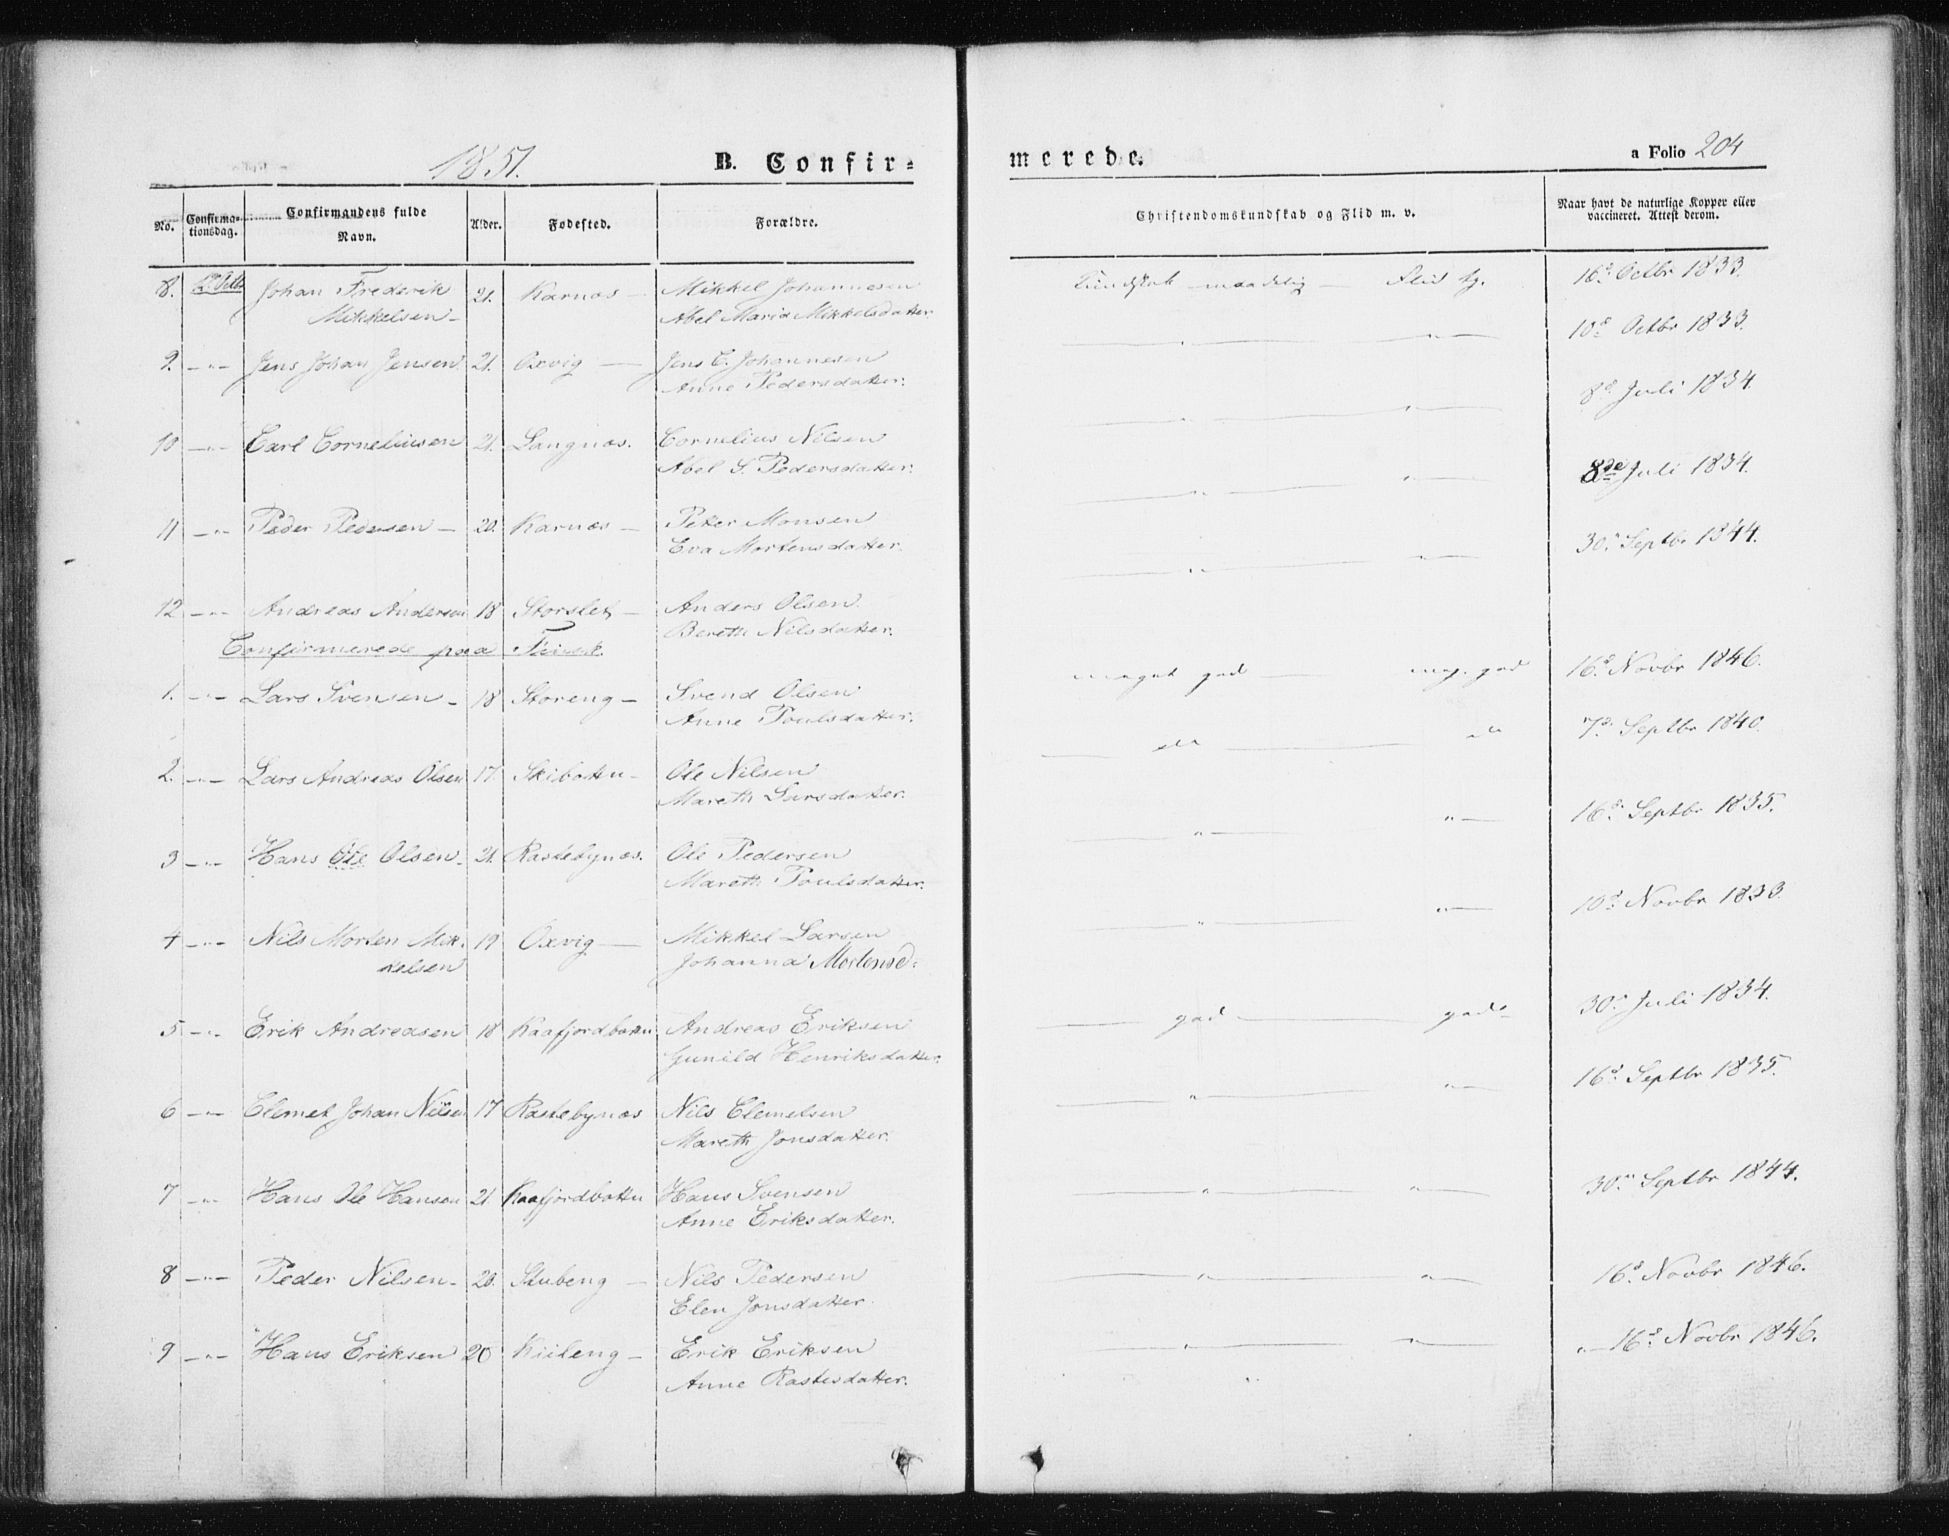 1851.
B. Confir-
merede.
a Folio 204
No.
Confirma-
tionsdag.
Confirmandens fulde
Navn.
Alder.
Fødested.
Forældre.
Christendomskundskab og Flid m. v.
Naar havt de naturlige Kopper eller
vaccineret. Attest derom.
8. Johan Frederik 21. Karnæs — Mikkel Johannesen Kundskab maadelig — Flid 16d. Octbr 1833.
Mikkelsen — Abel Maria Mikkelsdatter
9. —"— Jens Johan Jensen 21. Oxvig — Jens C. Johannesen —"— —"— 10d. Octbr 1833.
Anne Pedersdatter.
10 —"— Carl Corneliusen 21. Langnæs. Cornelius Nilsen —"— —"— 8d. Juli 1834.
Abel S. Pedersdatter.
11 —"— Peder Pedersen — 20. Karnæs — Petter Monsen —"— —"— 8de Juli 1834.
Eva Mortensdatter.
12 —"— Andreas Andersen 18 Storslet — Anders Olsen —"— —"— 30. Septbr 1844.
Bereth Nilsdatter.
Confirmerede paa
1. —"— Lars Svensen — 18 Storeng — Svend Olsen meget god — meg. god 16d. Novbr 1846.
Anne Poulsdatter.
2. —"— Lars Andreas Olsen 17. Skibotten — Ole Nilsen — 7d. Septbr 1840.
Mareth Larsdatter.
3 —"— Hans Ole Olsen — 21. Rastebynæs. Ole Pedersen —"— "— 16d. Septbr 1835.
Mareth Poulsdatter.
4 —"— Nils Morten Mik- 19 Oxvig — Mikkel Larsen —"— "— 10d. Novbr 1833.
kelsen Johanna Mortensd:
5 —"— Erik Andreasen 18 Kaafjordbotten Andreas Eriksen — god — god 30. Juli 1834.
Gunild Henriksdatter.
6 —"— Clemet Johan Nilsen 17 Rastebynæs Nils Clemetsen —"— "— 16d. Septbr 1835.
Mareth Jonsdatter.
7 —"— Hans Ole Hansen 21 Kaafjordbotten Hans Svensen —"— —"— 30. Septbr 1844.
Anne Eriksdatter.
8 —"— Peder Nilsen — 20. Stubeng — Nils Pedersen —"— —"— 16d. Novbr 1846.
Elen Jonsdatter.
9 —"— Hans Eriksen 20 Kiileng — Erik Eriksen —"— —"— 16d. Novbr 1846.
Anne Rastesdatter.